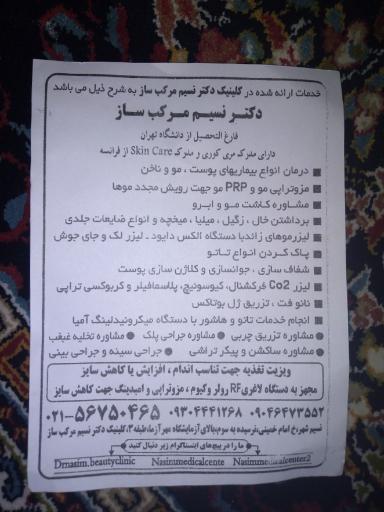 خدمات ارائه شده در کلینیک دکتر نسیم مرکب ساز به شرح ذیل می باشد
دکتر نسیم مرکب ساز
فارغ التحصیل از دانشگاه تهران
دارای مدرک مری کوری و مدرک Skin Care از فرانسه
درمان انواع بیماریهای پوست ، مو و ناخن
مزوتراپی مو و PRP مو جهت رویش مجدد موها
مشاوره کاشت مو و ابرو
برداشتن خال ، زگیل ، میلیا ، میخچه و انواع ضایعات جلدی
لیزر موهای زائد با دستگاه الکس دایود - لیزر لک و جای جوش
پاک کردن انواع تاتو
شفاف سازی ، جوانسازی و کلاژن سازی پوست
لیزر Co2 فرکشنال، کیوسوئیچ، پلاسمالیفتر و کربوکسی تراپی
نانو فت ، تزریق ژل بوتاکس
انجام خدمات تاتو و هاشور با دستگاه میکرونیدلینگ آمیا
مشاوره تزریق چربی مشاوره جراحی پلک مشاوره تخلیه غبغب
مشاوره ساکشن و پیکر تراشی جراحی سینه و جراحی بینی
ویزیت تغذیه جهت تناسب اندام ، افزایش یا کاهش سایز
مجهز به دستگاه لاغری RF رولر وکیوم ، مزوتراپی و امبدینگ جهت کاهش سایز
۰۹۰۴۶۴۷۳۵۵۲ ۰۹۳۰۴۴۴۱۲۶۸ ۰۲۱-۵۶۷۵۰۴۶۵
نسیم شهر،خ امام خمینی،نرسیده به سوم،بالای آزمایشگاه مهر آزما،طبقه۳،کلینیک دکتر نسیم مرکب ساز
ما را در پیج های اینستاگرام زیر دنبال کنید
Drnasim.beautyclinic Nasimmedicalcente Nasimmedicalcenter2